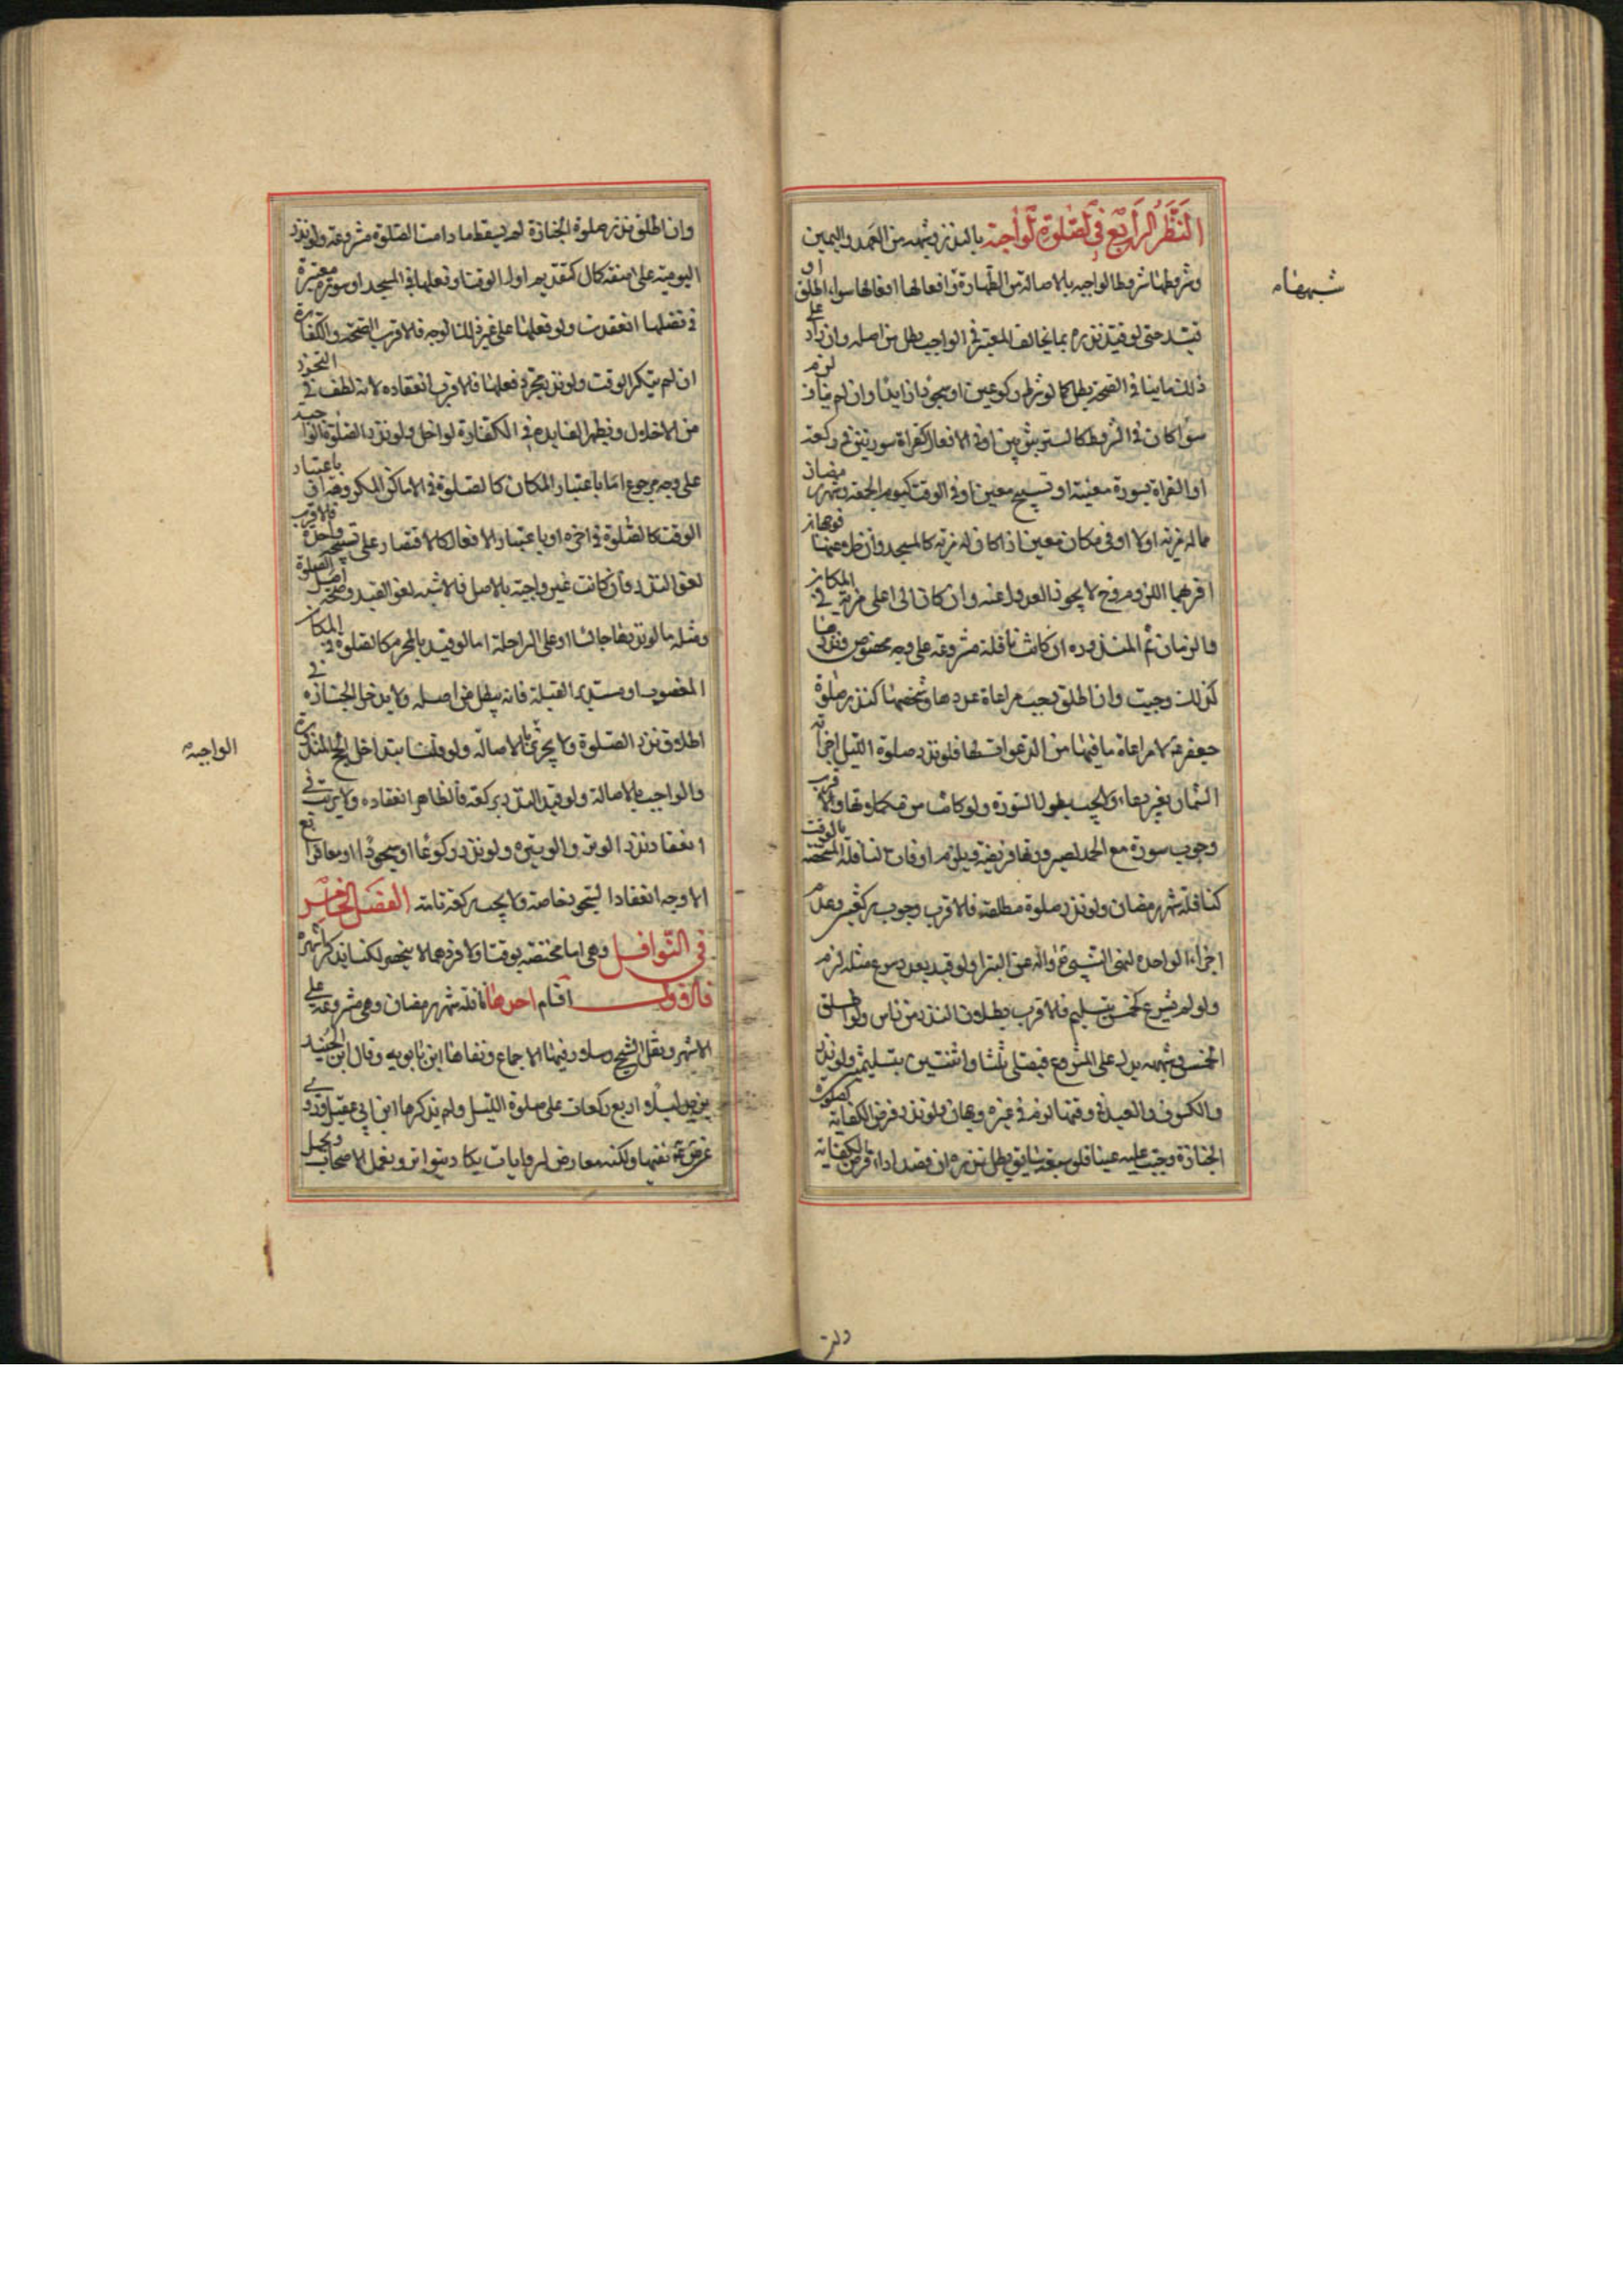 النظر الرابع في الصلوة الواجبة بالنذر وشبهه من العهد واليمين
وشروطها شروط الواجبة بالاصالة من الطهارة وافعالها افعالها سواء اطلق او
شبههاه
قيد حتى لو قيد نذره بما يخالف المعتبر في الواجب بطل من اصله وان زاد على
ذلك مباينا في الصحة بطل كما لو شرط ركوعين او سجودا زايدا وان لم يناف لزم
سواء كان في الشروط كالستر بثوبين او في الافعال كقراءة سورتين في ركعة
او القراءة بسورة معينة او تسبيح معين او في الوقت كيوم الجمعة وشهر رمضان
مما له مزية او لا او في مكان معين اذا كان له مزية كالمسجد وان خلا عنها فوجهان
اقربهما اللزوم وح لا يجوز العدول عنه وان كان الى اعلى مزية في المكان
والزمان ثم المنذورة ان كانت نافلة مشروعة على وجه مخصوص ونذرها
كذلك وجبت وان اطلق يجب مراعاة عددها وشخصها كنذر صلوة
جعفر ع لا مراعاة ما فيها من الدعوات فلو نذر صلوة الليل اجزأته
الثمان بغير دعاء ولا يجب طول السورة ولو كانت من مكملاتها والاقرب
وجوب سورة مع الحمد لصيرورتها فريضة ويلزم اوقات النافلة المختصة بالوقت
كنافلة شهر رمضان ولو نذر صلوة مطلقة فالاقرب وجوب ركعتين وعدم
اجزاء الواحدة لنهي النبي ص واله عن البترا ولو قيد بعدد شرع مثله لزم
ولو لم يشرع كخمس بتسليم فالاقرب بطلان النذر من راس ولو اطلق
الخمس وشبهه نزل على المشروع فيصلي ثلثا واثنتين بتسليمتين ولو نذر
والكسوف والعيد في وقتها لزم وفي غيره وجهان ولو نذر فرض الكفاية كصلوة
الجنازة وجبت عليه عينا فلو سبقه سابق بطل نذره ان قصد اداء فرض الكفاية
وان اطلق نذر صلوة الجنازة لم يسقط ما دامت الصلوة مشروعة ولو نذر
اليومية على صفة كمال كتقديم اول الوقت او فعلها في المسجد او سورة معتبرة
في فضلها انعقدت ولو فعلها على غير ذلك الوجه فالاقرب الصحة والكفارة
ان لم يتكرر الوقت ولو نذر مجرد فعلها فالاقرب انعقاده لانه لطف في التحرز
من الاخلال ويظهر الفايدة في الكفارة لو اخل ولو نذر الصلوة الواجبة
على وجه مرجوع اما باعتبار المكان كالصلوة في الاماكن المكروهة او باعتبار
الوقت كالصلوة في اخره او باعتبار الافعال كالاقتصار على تسبيحة واحدة فالاقرب
لغو النذر وان كانت غير واجبة بالاصل فالاشبه لغو القيد وصحة اصل الصلوة
ومثله ما لو نذرها جالسا او على الراحلة اما لو قيد بالمحرم كالصلوة في المكان
المغصوب او مستدبر القبلة فانه يبطل من اصله ولا يدخل الجنازة في
اطلاق نذر الصلوة ولا يجزئ بالاصالة ولو قلنا بتداخل الحج المنذور
الواجبة
والواجب بالاصالة ولو قيد النذر بركعة فالظاهر انعقاده ولا ريب في
انعقاد نذر الوتر والوتيرة ولو نذر ركوعا او سجودا او معا فرابع
الاوجه انعقاد السجود خاصة ولا يجب ركعة تامة الفصل الخامس
في النوافل وهي اما مختصة بوقت او لا وفردهما لا ينحصر لكنا نذكر اشهره
فالاول اقسام احدها نافلة شهر رمضان وهي مشروعة على
الاشهر ونقل الشيخ وسلار فيها الاجماع ونفاها ابن بابويه وقال ابن الجنيد
يزيد ليلا اربع ركعات على صلوة الليل ولم يذكرها ابن ابي عقيل وروي
نفيها ولكنه معارض لروايات يكاد يتواتر وبعمل الاصحاب